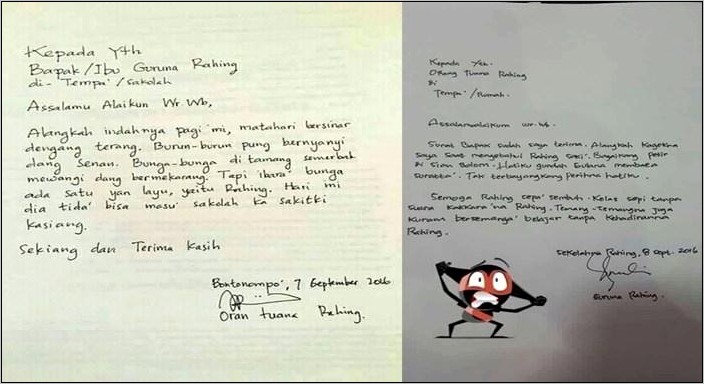 Kepada Yth
Bapak/Ibu Guruna Rahing
di- Tempa'/sakolah
Assalamu Alaikun Wr. Wb,
Alangkah indahnya pagi mi, matahari bersinar
dengang terang. Burun-burun pung bernyanyi
dang senan. Bunga-bunga di tamang semerbak
mewangi dang bermekarang. Tapi ibara' bunga
ada satu yan layu, yaitu Rahing. Hari ini
dia tida' bisa masu' sakolah ka sakitki
kasiang.
Sekiang dan Terima Kasih
Bontonompo', 7 September 2016
Oran tuana Rahing.
Kepada Yth.
Orang Tuana Rahing
di
Tempa'/Rumah.
Assalamualaikum wr. wb.
Surat Bapak sudah saya terima. Alangkah kagetna
saya saat mengetahui Rahing saki'. Bagaikang petir
di siang bolong. Hatiku gundah gulana membaca
suratta'. Tak terbayangkang perihna hatiku.
Semoga Rahing cepa' sembuh. Kelas sepi tanpa
suara kakkara'na Rahing. Temang-temangna juga
kurang bersemanga' belajar tanpa kehadiranna
Rahing.
Sekolahna Rahing, 8 sept. 2016
Guruna Rahing.